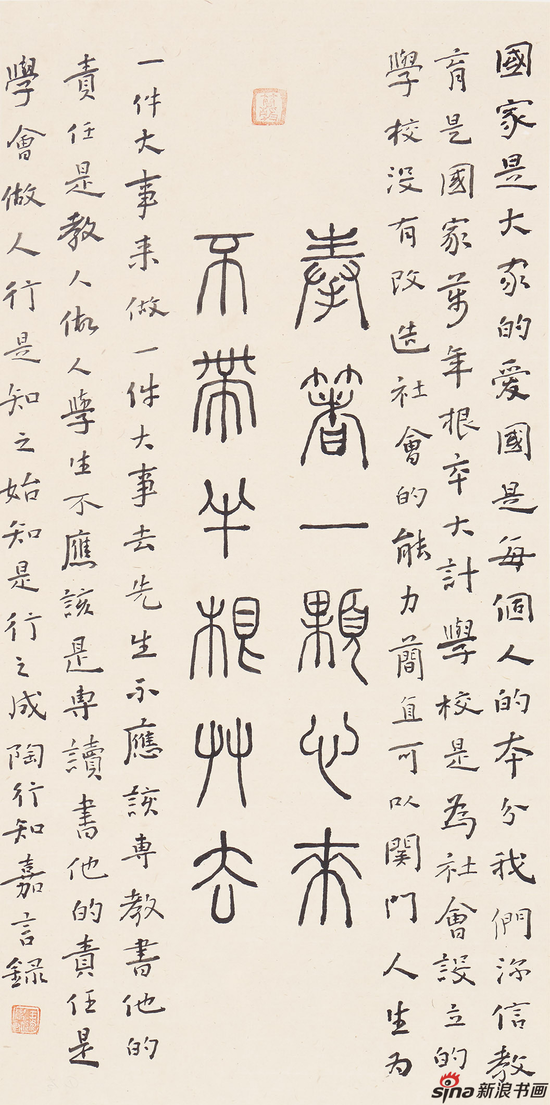 國家是大家的愛國是每個人的本分我們深信教
育是國家萬年根本大計學校是為社會設立的
學校没有改造社會的能力簡直可以関門人生为
奉著一顆心来
不帶半根艸去
一件大事来做一件大事去先生不應該専教書他的
責任是教人做人學生不應該是専讀書他的責任是
學會做人行是知之始知是行之成陶行知嘉言録
sina 新浪书画